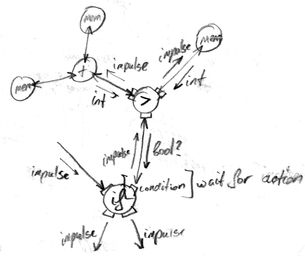 mem
mem
+
impulse
impulse
mem
int
int
>
impulse
bool?
impulse
if
condition ] wait for action
impulse
impulse